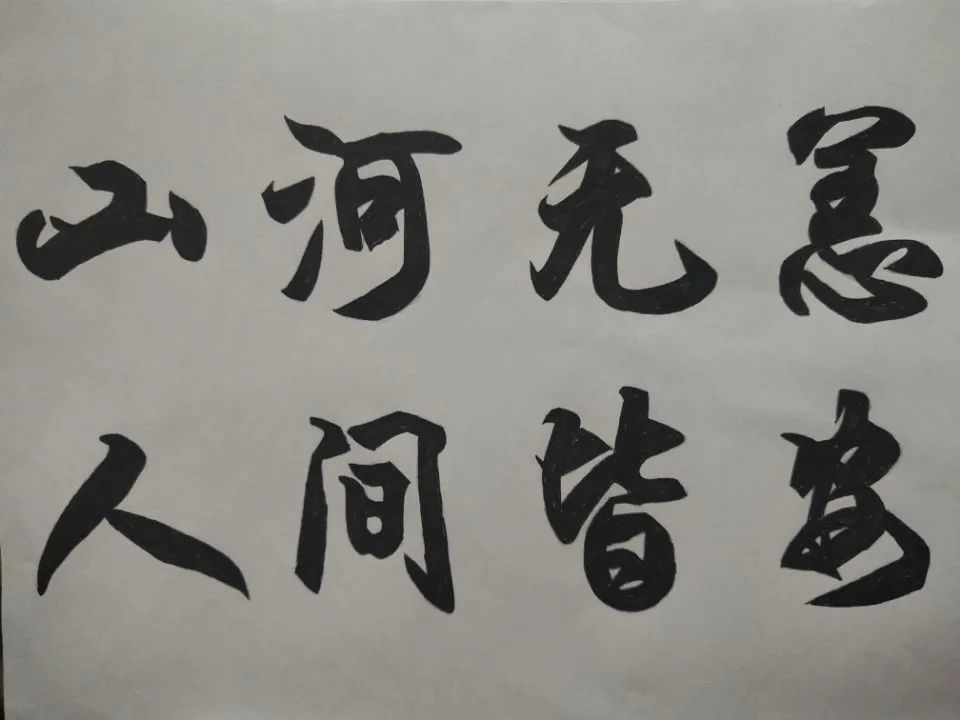 山河无恙
人间皆安